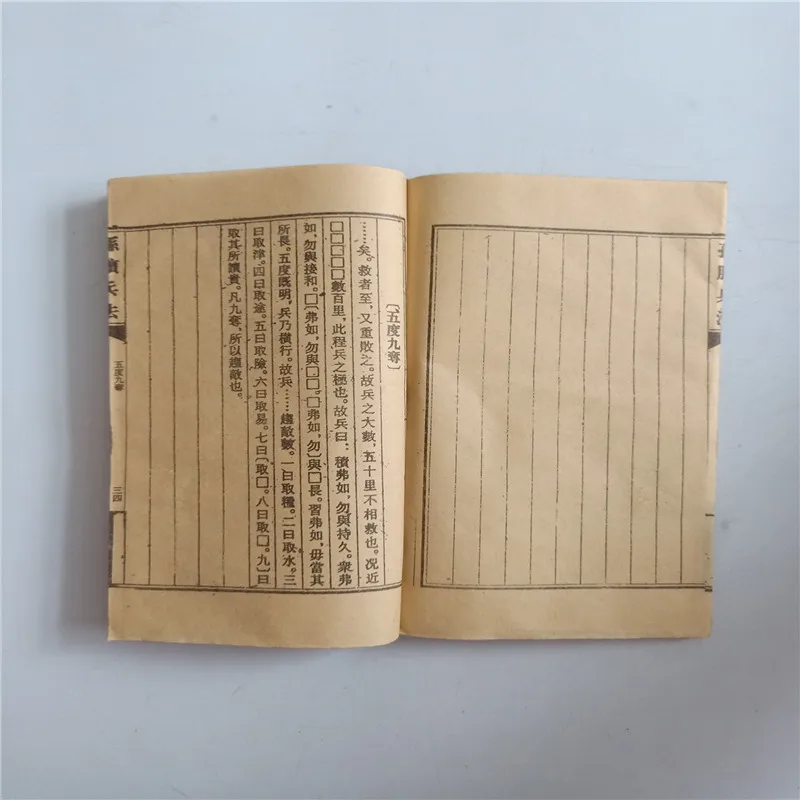 孫臏兵法
〔五度九奪〕
……矣。救者至,又重敗之。故兵之大數,五十里不相救也。况近
□□□□□數百里,此程兵之極也。故兵曰:積弗如,勿與持久。衆弗
如,勿與接和。□〔弗如,勿與□□。□弗如,勿〕與□長。習弗如,毋當其
所長。五度既明,兵乃橫行。故兵……趨敵數。一曰取糧。二曰取水。三
曰取津。四曰取途。五曰取險。六曰取易。七曰〔取□。八曰取□。九〕曰
取其所讀貴。凡九奪,所以趨敵也。
孫臏兵法
五度九奪
三四